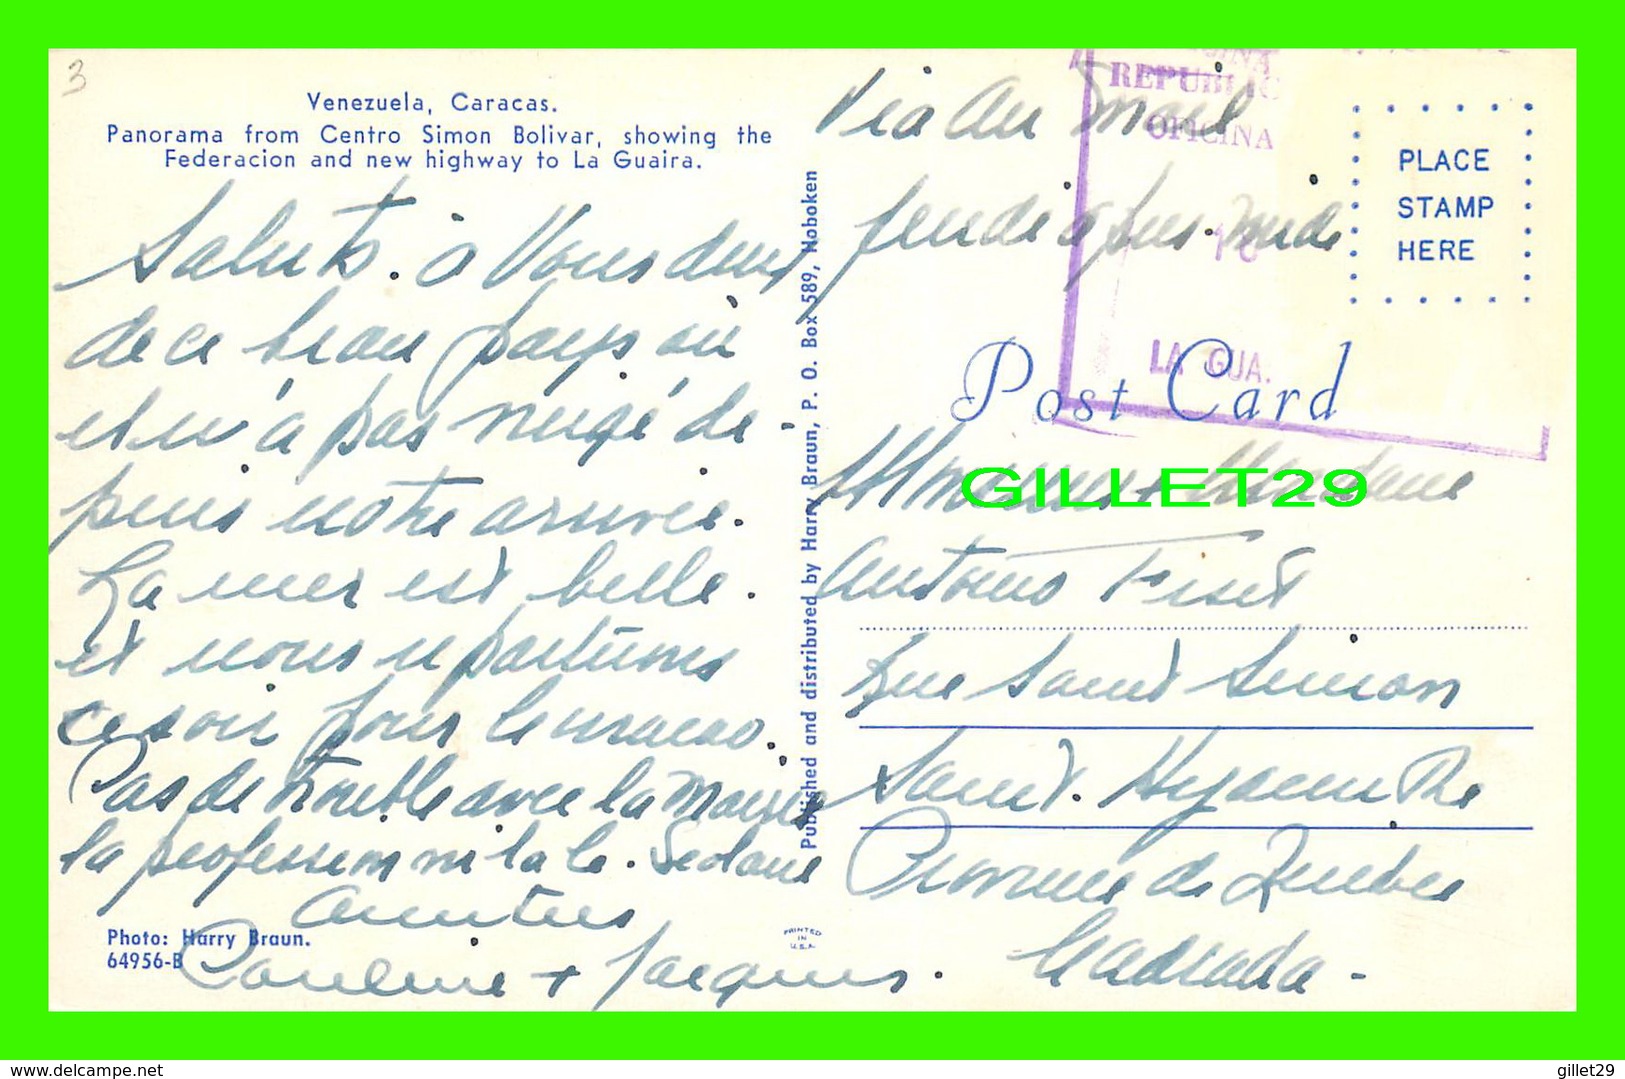 3
Venezuela, Caracas.
Panorama from Centro Simon Bolivar, showing the
Federacion and new highway to La Guaira.
Saluts. à Vous deux
de ce beau pays où
il n'a pas neigé de-
puis notre arrivée.
La mer est belle.
et nous repartirons
ce soir pour le curacao.
Pas de trouble avec la
la profession ni la le.
Amities
Pauline + Jacques.
Photo: Harry Braun.
64956-B
Published and distributed by Harry Braun, P. O. Box 589, Hoboken
PRINTED
IN
U.S.A.
Via Air Mail
jeudi
REPUBLIC
OFICINA
10
LA GUA.
PLACE
STAMP
HERE
Post Card
GILLET29
Monsieur + Madame
Antonio Fiset
Rue Saint Simon
Saint. Hyacinthe
Province de Quebec
Canada -
www.delcampe.net
gillet29